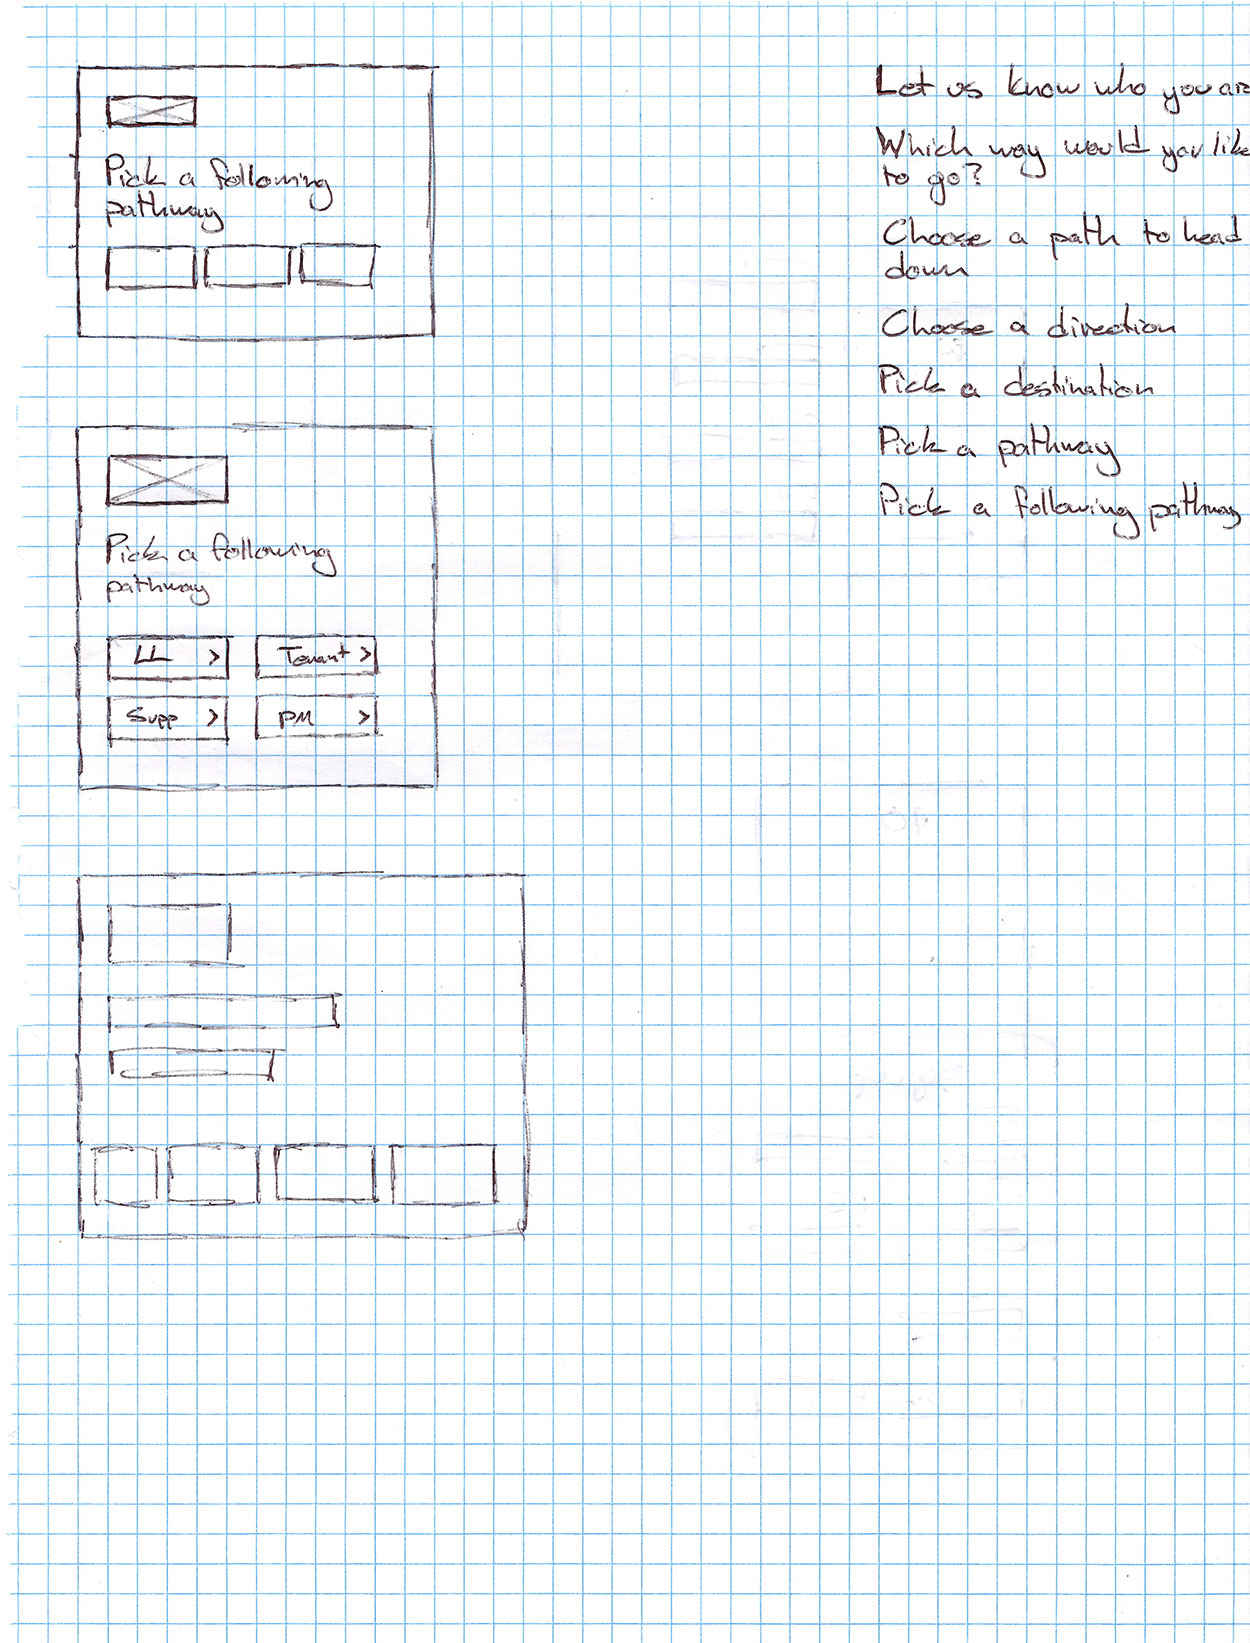 Pick a following
pathway
Pick a following
pathway
LL >
Tenant >
Supp >
PM >
Let us know who you are
Which way would you like
to go?
Choose a path to head
down
Choose a direction
Pick a destination
Pick a pathway
Pick a following pathway